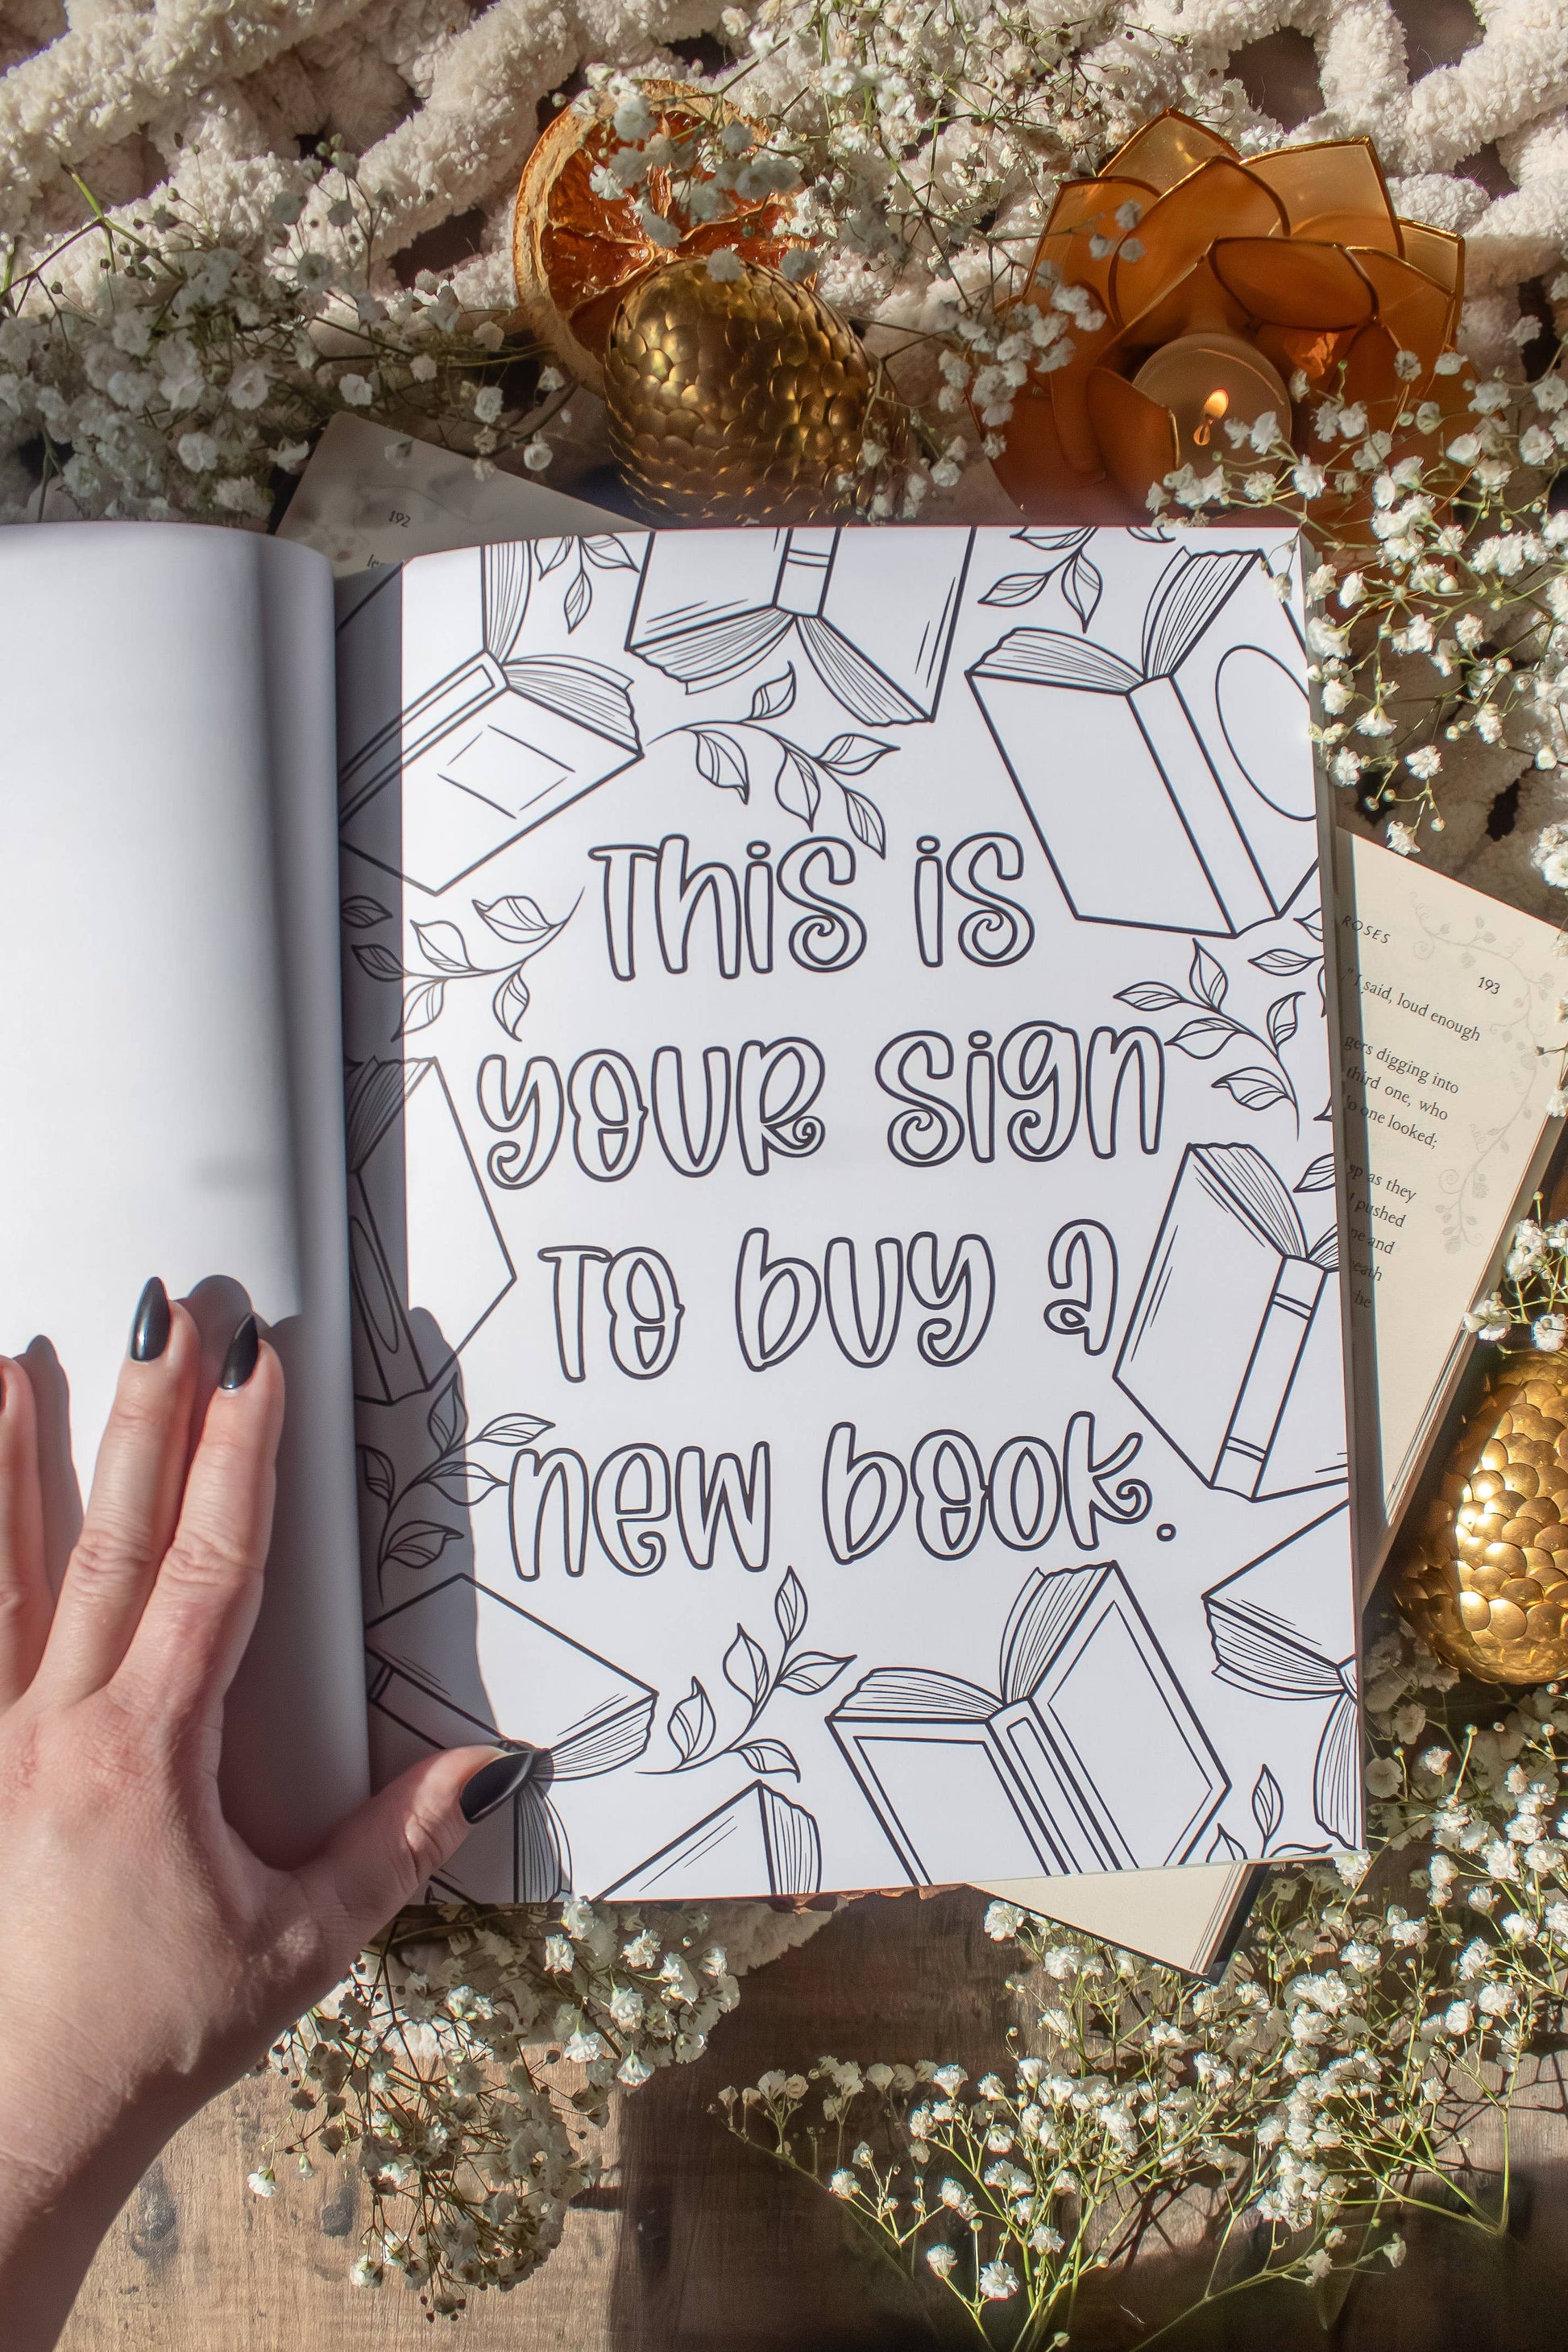 192
This is
your sign
to buy a
new book.
ROSES
193
" I said, loud enough
gers digging into
third one, who
o one looked;
sp as they
pushed
ne and
eath
he